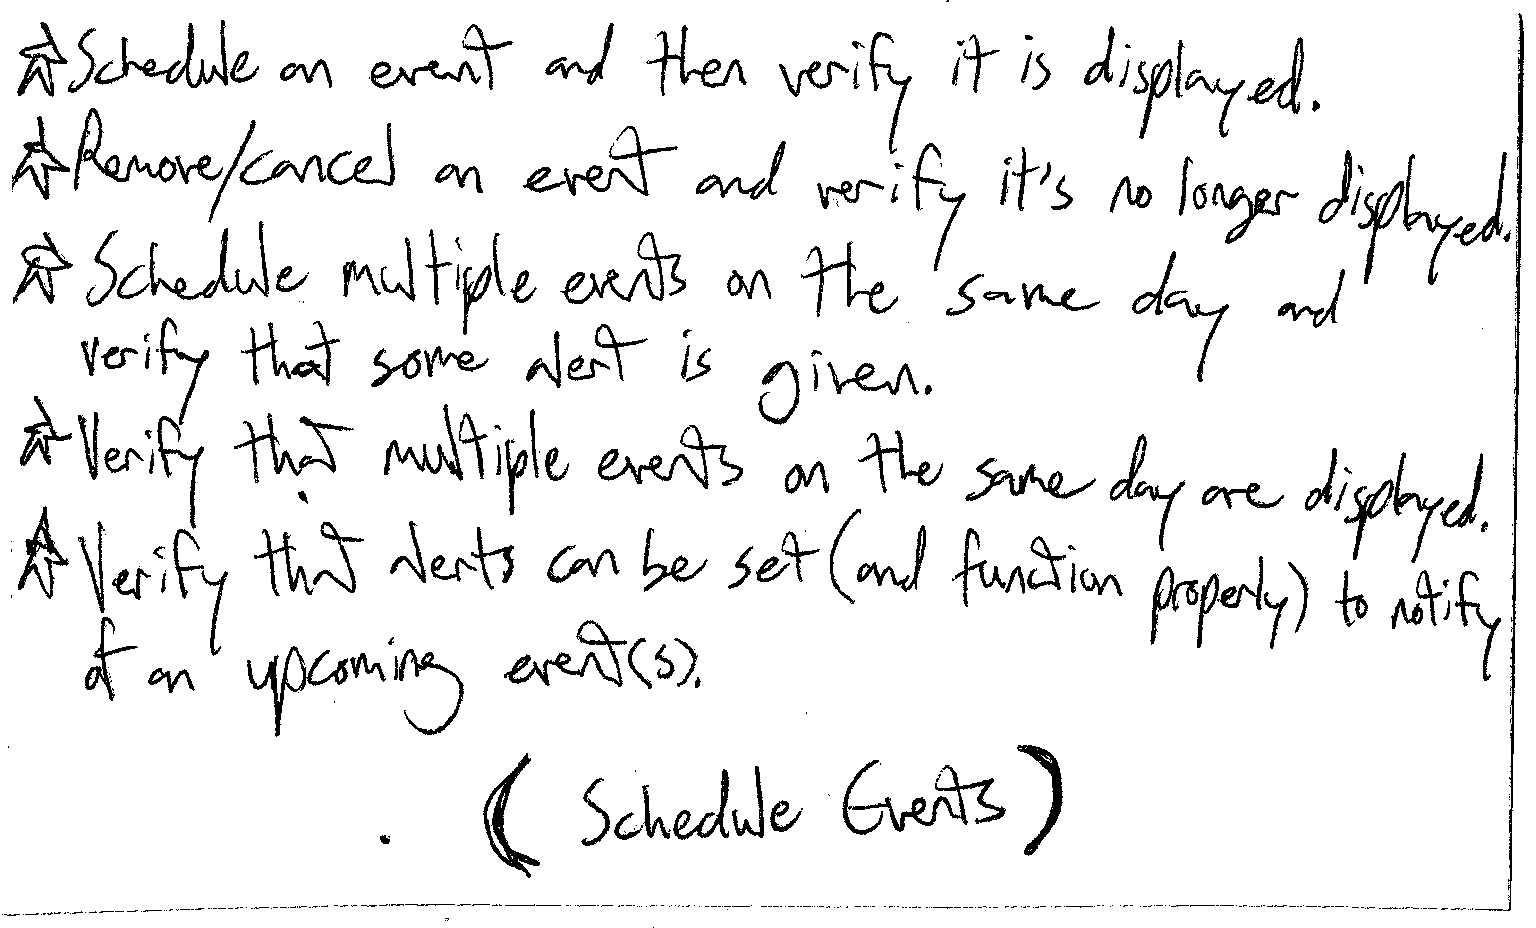 ☆Schedule an event and then verify it is displayed.
☆Remove/cancel an event and verify it's no longer displayed.
☆Schedule multiple events on the same day and
verify that some alert is given.
☆Verify that multiple events on the same day are displayed.
☆Verify that alerts can be set (and function properly) to notify
of an upcoming event(s).
(Schedule Events)